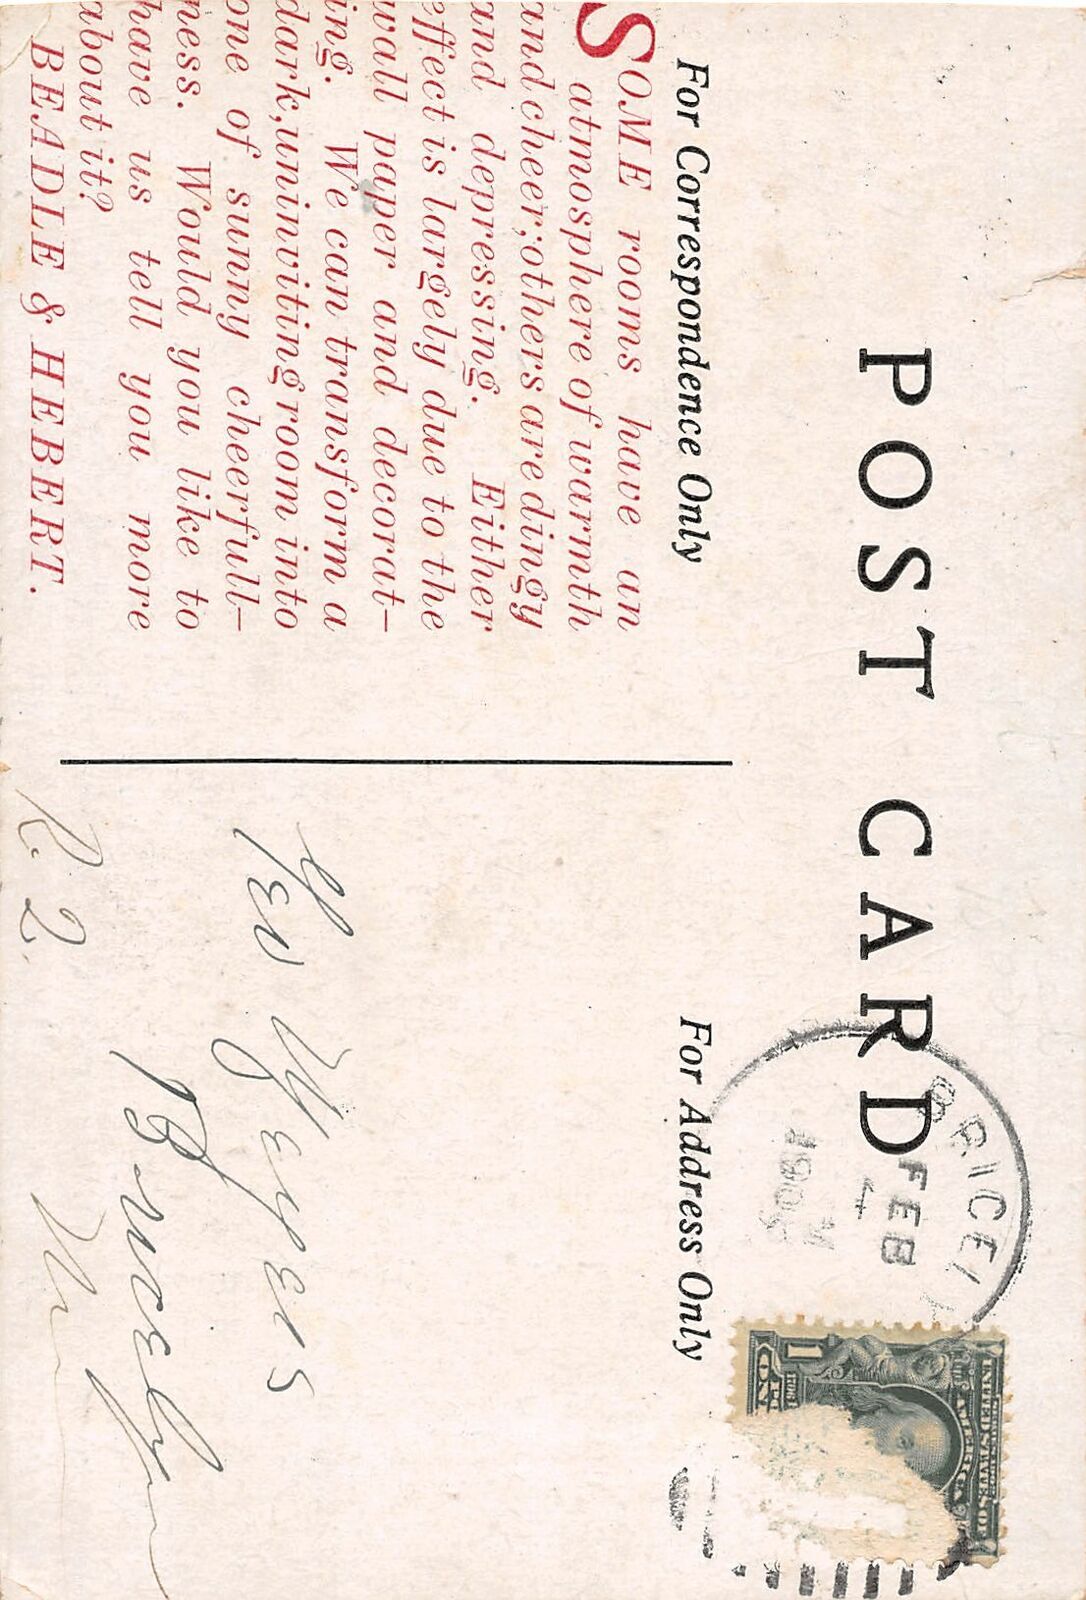 POST CARD
For Correspondence Only
SOME rooms have an
atmosphere of warmth
and cheer; others are dingy
and depressing. Either
effect is largely due to the
wall paper and decorat-
ing. We can transform a
dark, uninviting room into
one of sunny cheerfull-
ness. Would you like to
have us tell you more
about it?
BEADLE & HEBERT.
For Address Only
BRICEL
FEB
4
M
UNITED STATES OF
AMERICA
1
R. 2.